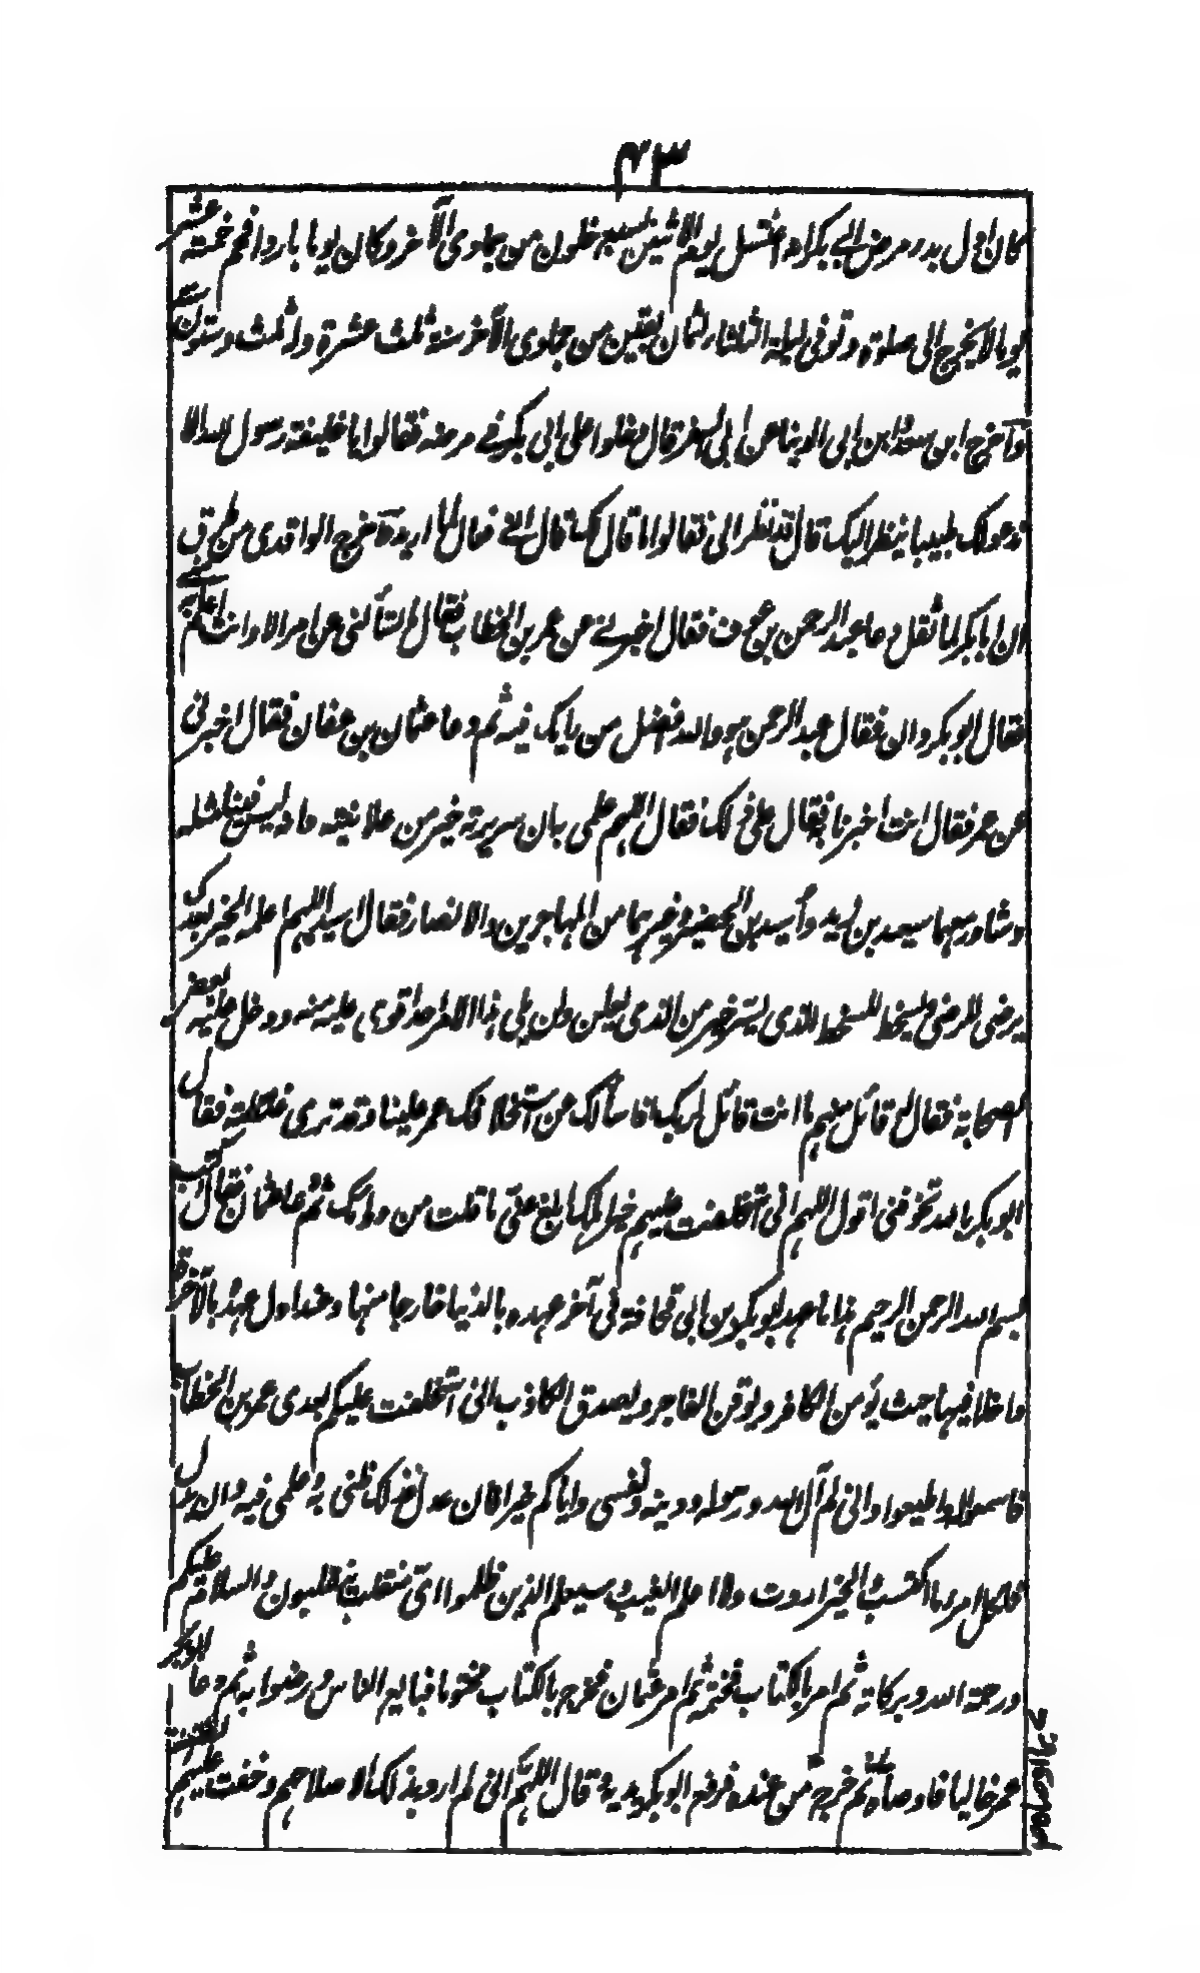 ٤٣
كان اول بدو مرض ابي بكر انه اغتسل يوم الاثنين لسبع خلون من جمادى الآخر وكان يوما باردا فحم خمسة عشر
يوما لا يخرج الى صلوة وتوفي ليلة الثلثاء لثمان بقين من جمادى الآخر سنة ثلث عشرة وله ثلث وستون سنة
وآخرج ابن سعد وابن ابي الدنيا عن ابي السفر قال دخلوا على ابي بكر في مرضه فقالوا يا خليفة رسول الله الا
ندعو لك طبيبا ينظر اليك قال قد نظر الي فقالوا ما قال لك قال اني فعال لما اريد وآخرج الواقدي من طرق
ان ابا بكر لما ثقل دعا عبد الرحمن بن عوف فقال اخبرني عن عمر بن الخطاب فقال ما تسألني عن امر الا وانت اعلم به مني
فقال ابو بكر وان فقال عبد الرحمن هو والله افضل من رأيك فيه ثم دعا عثمان بن عفان فقال اخبرني
عن عمر فقال انت اخبرنا به فقال على ذلك فقال اللهم علمي به ان سريرته خير من علانيته وانه ليس فينا مثله
وشاور معهما سعيد بن زيد وأسيد بن الحضير وغيرهما من المهاجرين والانصار فقال اسيد اللهم اعلمه الخير بعدك
يرضى للرضى ويسخط للسخط الذي يسر خير من الذي يعلن ولن يلي هذا الامر احد اقوى عليه منه ودخل عليه بعض
الصحابة فقال له قائل منهم ما انت قائل لربك اذا سألك عن استخلافك عمر علينا وقد ترى غلظته فقال
ابو بكر بالله تخوفني اقول اللهم اني استخلفت عليهم خير اهلك ابلغ عني ما قلت من ورائك ثم دعا عثمان فقال اكتب
بسم الله الرحمن الرحيم هذا ما عهد ابو بكر بن ابي قحافة في آخر عهده بالدنيا خارجا منها وعند اول عهده بالآخرة
داخلا فيها حيث يؤمن الكافر ويوقن الفاجر ويصدق الكاذب اني استخلفت عليكم بعدي عمر بن الخطاب
فاسمعوا له واطيعوا واني لم آل الله ورسوله ودينه ونفسي واياكم خيرا فان عدل فذلك ظني به وعلمي فيه وان بدل
فلكل امرء ما اكتسب والخير اردت ولا اعلم الغيب وسيعلم الذين ظلموا اي منقلب ينقلبون والسلام عليكم
ورحمة الله وبركاته ثم امر بالكتاب فختمه ثم امر عثمان فخرج بالكتاب مختوما فبايع الناس ورضوا به ثم دعا ابو بكر
عمر خاليا فاوصاه ثم خرج من عنده فرفع ابو بكر يديه وقال اللهم اني لم ارد بذلك الا صلاحهم وخفت عليهم الفتنة